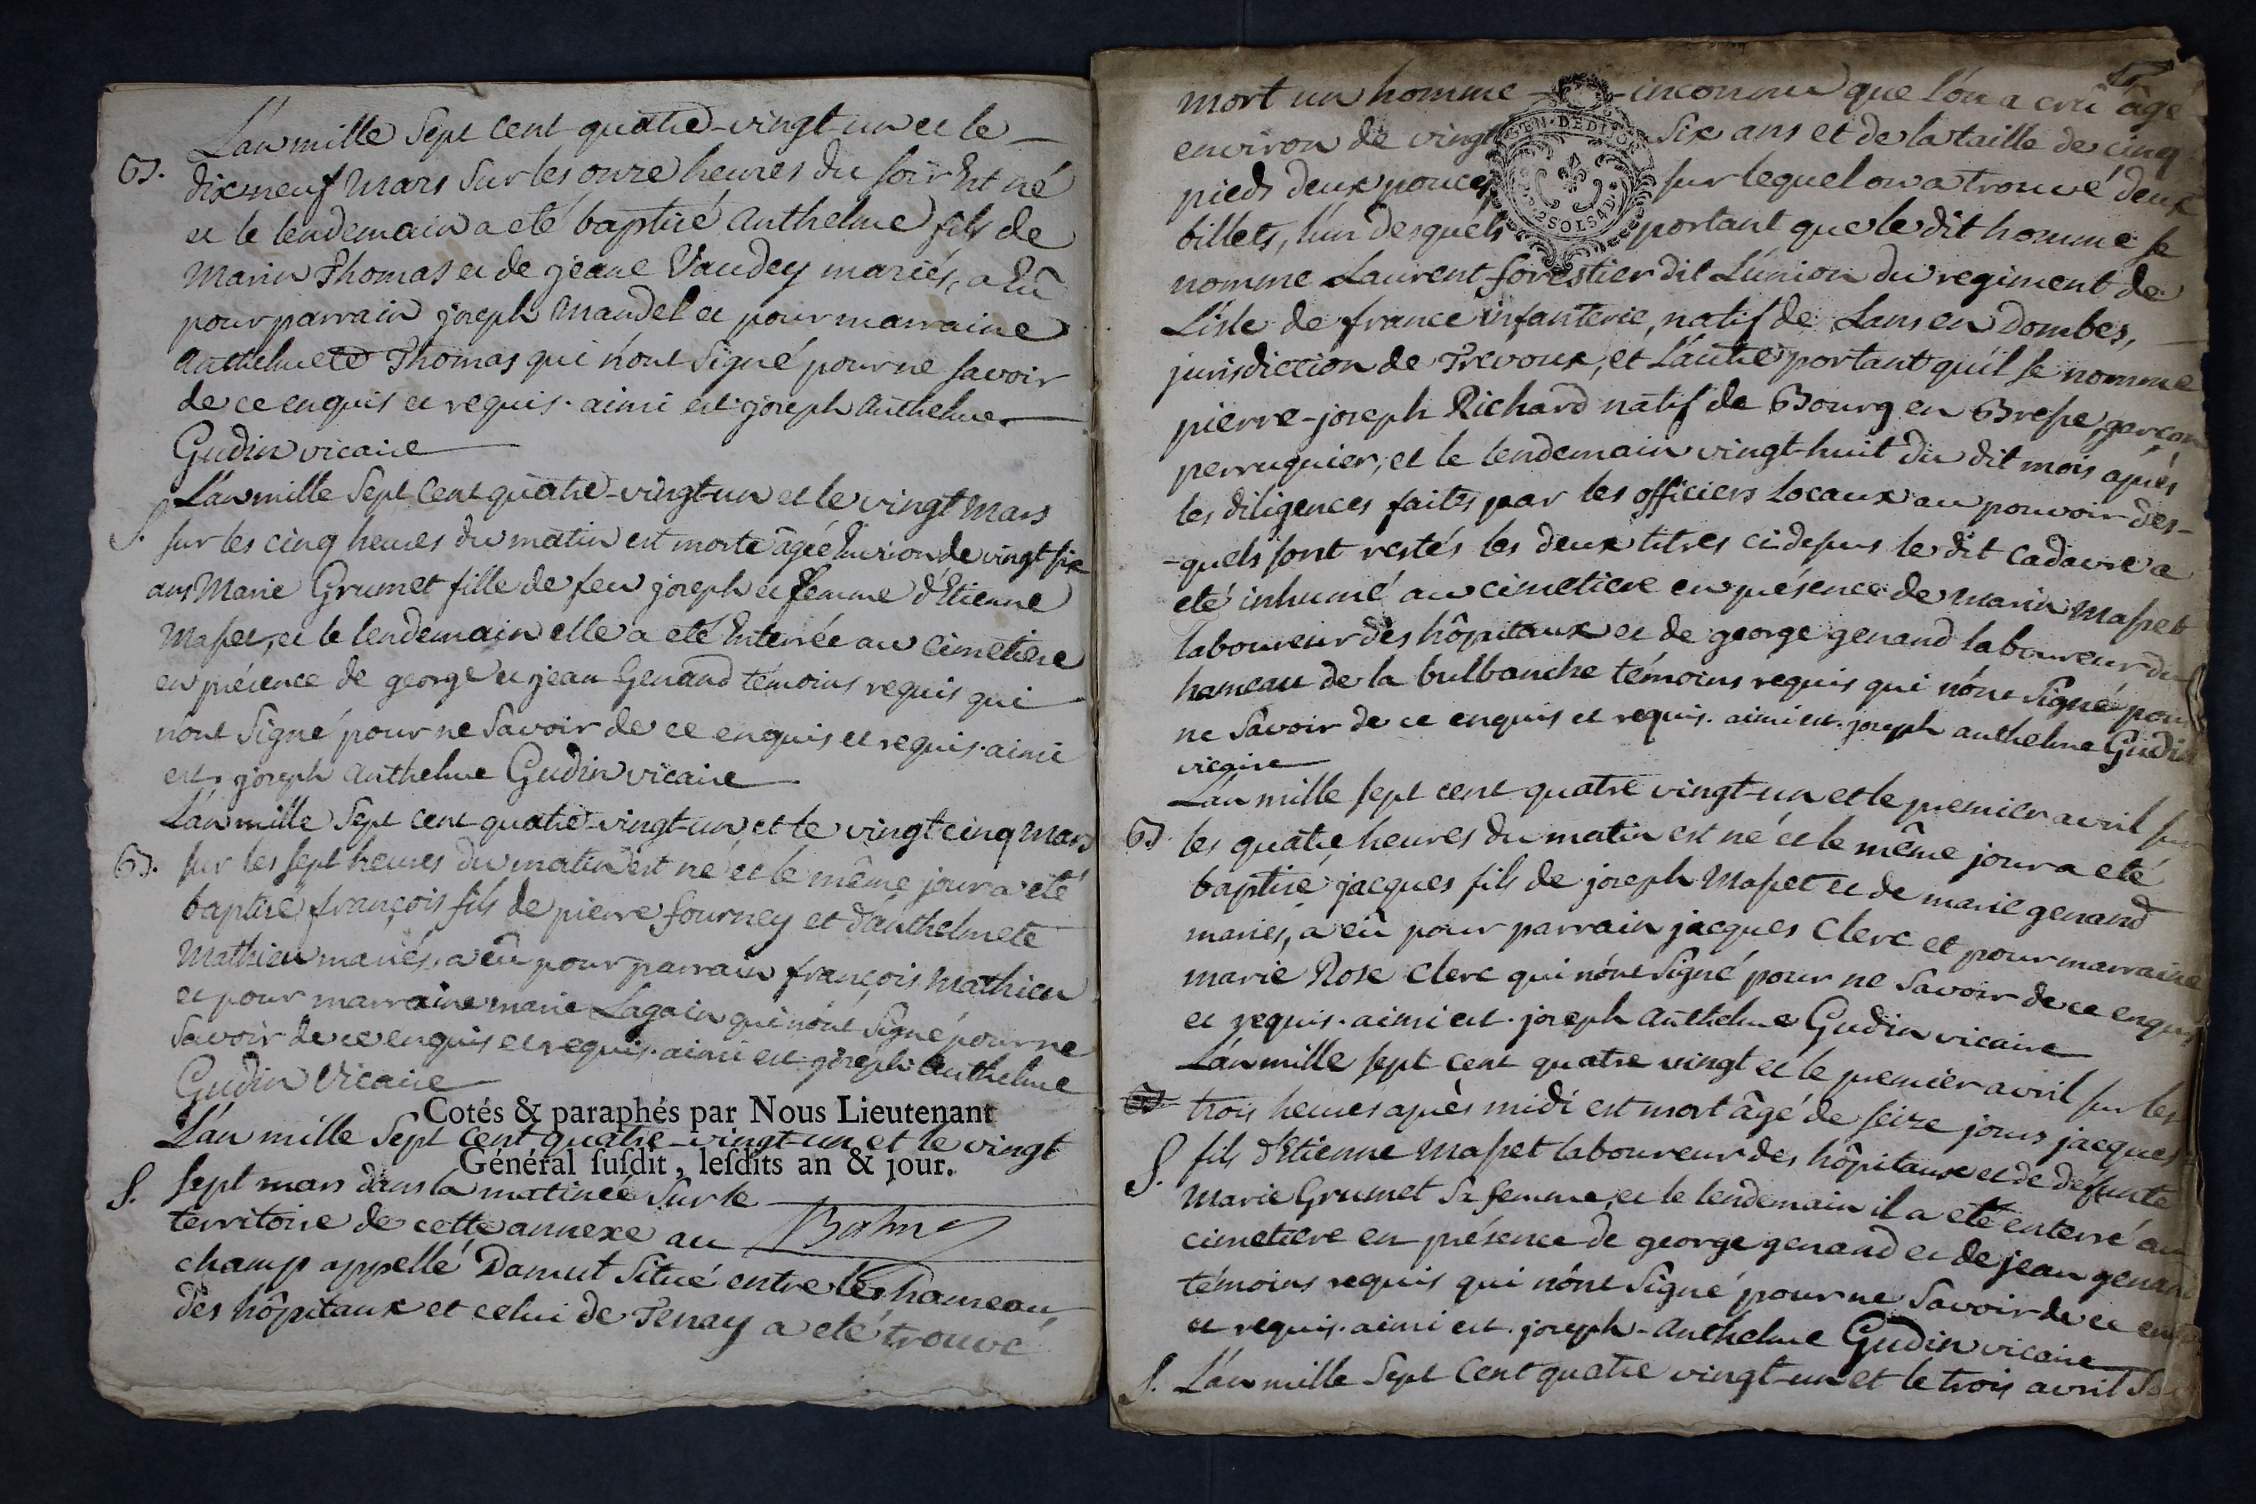 L'an mille Sept Cent quatre-vingt-un et le
B. dix neuf Mars Sur les onze heures du soir Est né
et le lendemain a eté baptisé Anthelme fils de
Marin Thomas et de jeane Vaudey mariés, a Eû
pour parrain joseph Mandel et pour marraine
Anthelmete Thomas qui n'ont Signé pour ne savoir
de ce enquis et requis. ainsi est joseph Anthelme
Gudin vicaire
L'an mille Sept Cent quatre-vingt-un et le vingt Mars
S. sur les cinq heures du matin est morte âgée Environ de vingt six
ans Marie Grumet fille de feu joseph et femme d'Etienne
Masset, et le lendemain elle a eté Enterrée au Cimetiere
en présence de george et jean Genand témoins requis qui
n'ont Signé pour ne Savoir de ce enquis et requis. ainsi
est. joseph Anthelme Gudin vicaire
L'an mille Sept Cent quatre-vingt-un et le vingt cinq Mars
B. sur les sept heures du matin est né et le même jour a eté
baptisé françois fils de pierre fourney et d'anthelmete
Mathieu mariés, a eû pour parrain françois Mathieu
et pour marraine marie Lagain qui n'ont Signé pour ne
Savoir de ce enquis et requis. ainsi est joseph Anthelme
Gudin Vicaire
Cotés & paraphés par Nous Lieutenant
L'an mille Sept Cent quatre-vingt-un et le vingt
Général susdit, lesdits an & jour.
S. sept mars dans la matineé Sur le
territoire de cette annexe au
champ appellé Damut Situé entre les hameau,
des hôpitaux et celui de Tenay a eté trouvé
mort un homme inconnu que l'on a crû âgé
environ de vingt Six ans et de la taille de cinq
pieds deux pouces sur lequel on a trouvé deux
billets, l'un desquels portant que le dit homme se
GEN. DE DIJON
2 SOLS 4 D.
nomme Laurent forestier dit L'union du regiment de
L'isle de france infanterie, natif de Lans en Dombes,
jurisdiction de Trevoux, et L'autre portant qu'il se nomme
pierre-joseph Richard natif de Bourg en Bresse, garçon
perruquier, et le lendemain vingt-huit du dit mois après
les diligences faites par les officiers Locaux au pouvoir des-
-quels sont restés les deux titres ci-dessus le dit Cadavre a
eté inhumé au cimetiere en présence de Marin Masset
laboureur des hôpitaux et de george genand laboureur du
hameau de la bulbanche témoins requis qui n'ont Signé pour
ne Savoir de ce enquis et requis. ainsi est. joseph anthelme Gudin
vicaire
L'an mille sept cent quatre vingt-un et le premier avril sur
B. les quatre heures du matin est né et le même jour a eté
baptisé jacques fils de joseph Masset et de marie genand
mariés, a eû pour parrain jacques Clerc et pour marraine
marie Rose Clerc qui n'ont Signé pour ne Savoir de ce enquis
et requis. ainsi est. joseph Anthelme Gudin vicaire
L'an mille sept cent quatre vingt et le premier avril sur les
trois heures après midi est mort âgé de seize jours jacques
S. fils d'Etienne Masset laboureur des hôpitaux et de defunte
Marie Grumet Sa femme, et le lendemain il a eté enterré au
cimetiere en présence de george genand et de jean genand
témoins requis qui n'ont Signé pour ne Savoir de ce
et requis. ainsi est. joseph-Anthelme Gudin vicaire
S. L'an mille Sept Cent quatre vingt-un et le trois avril